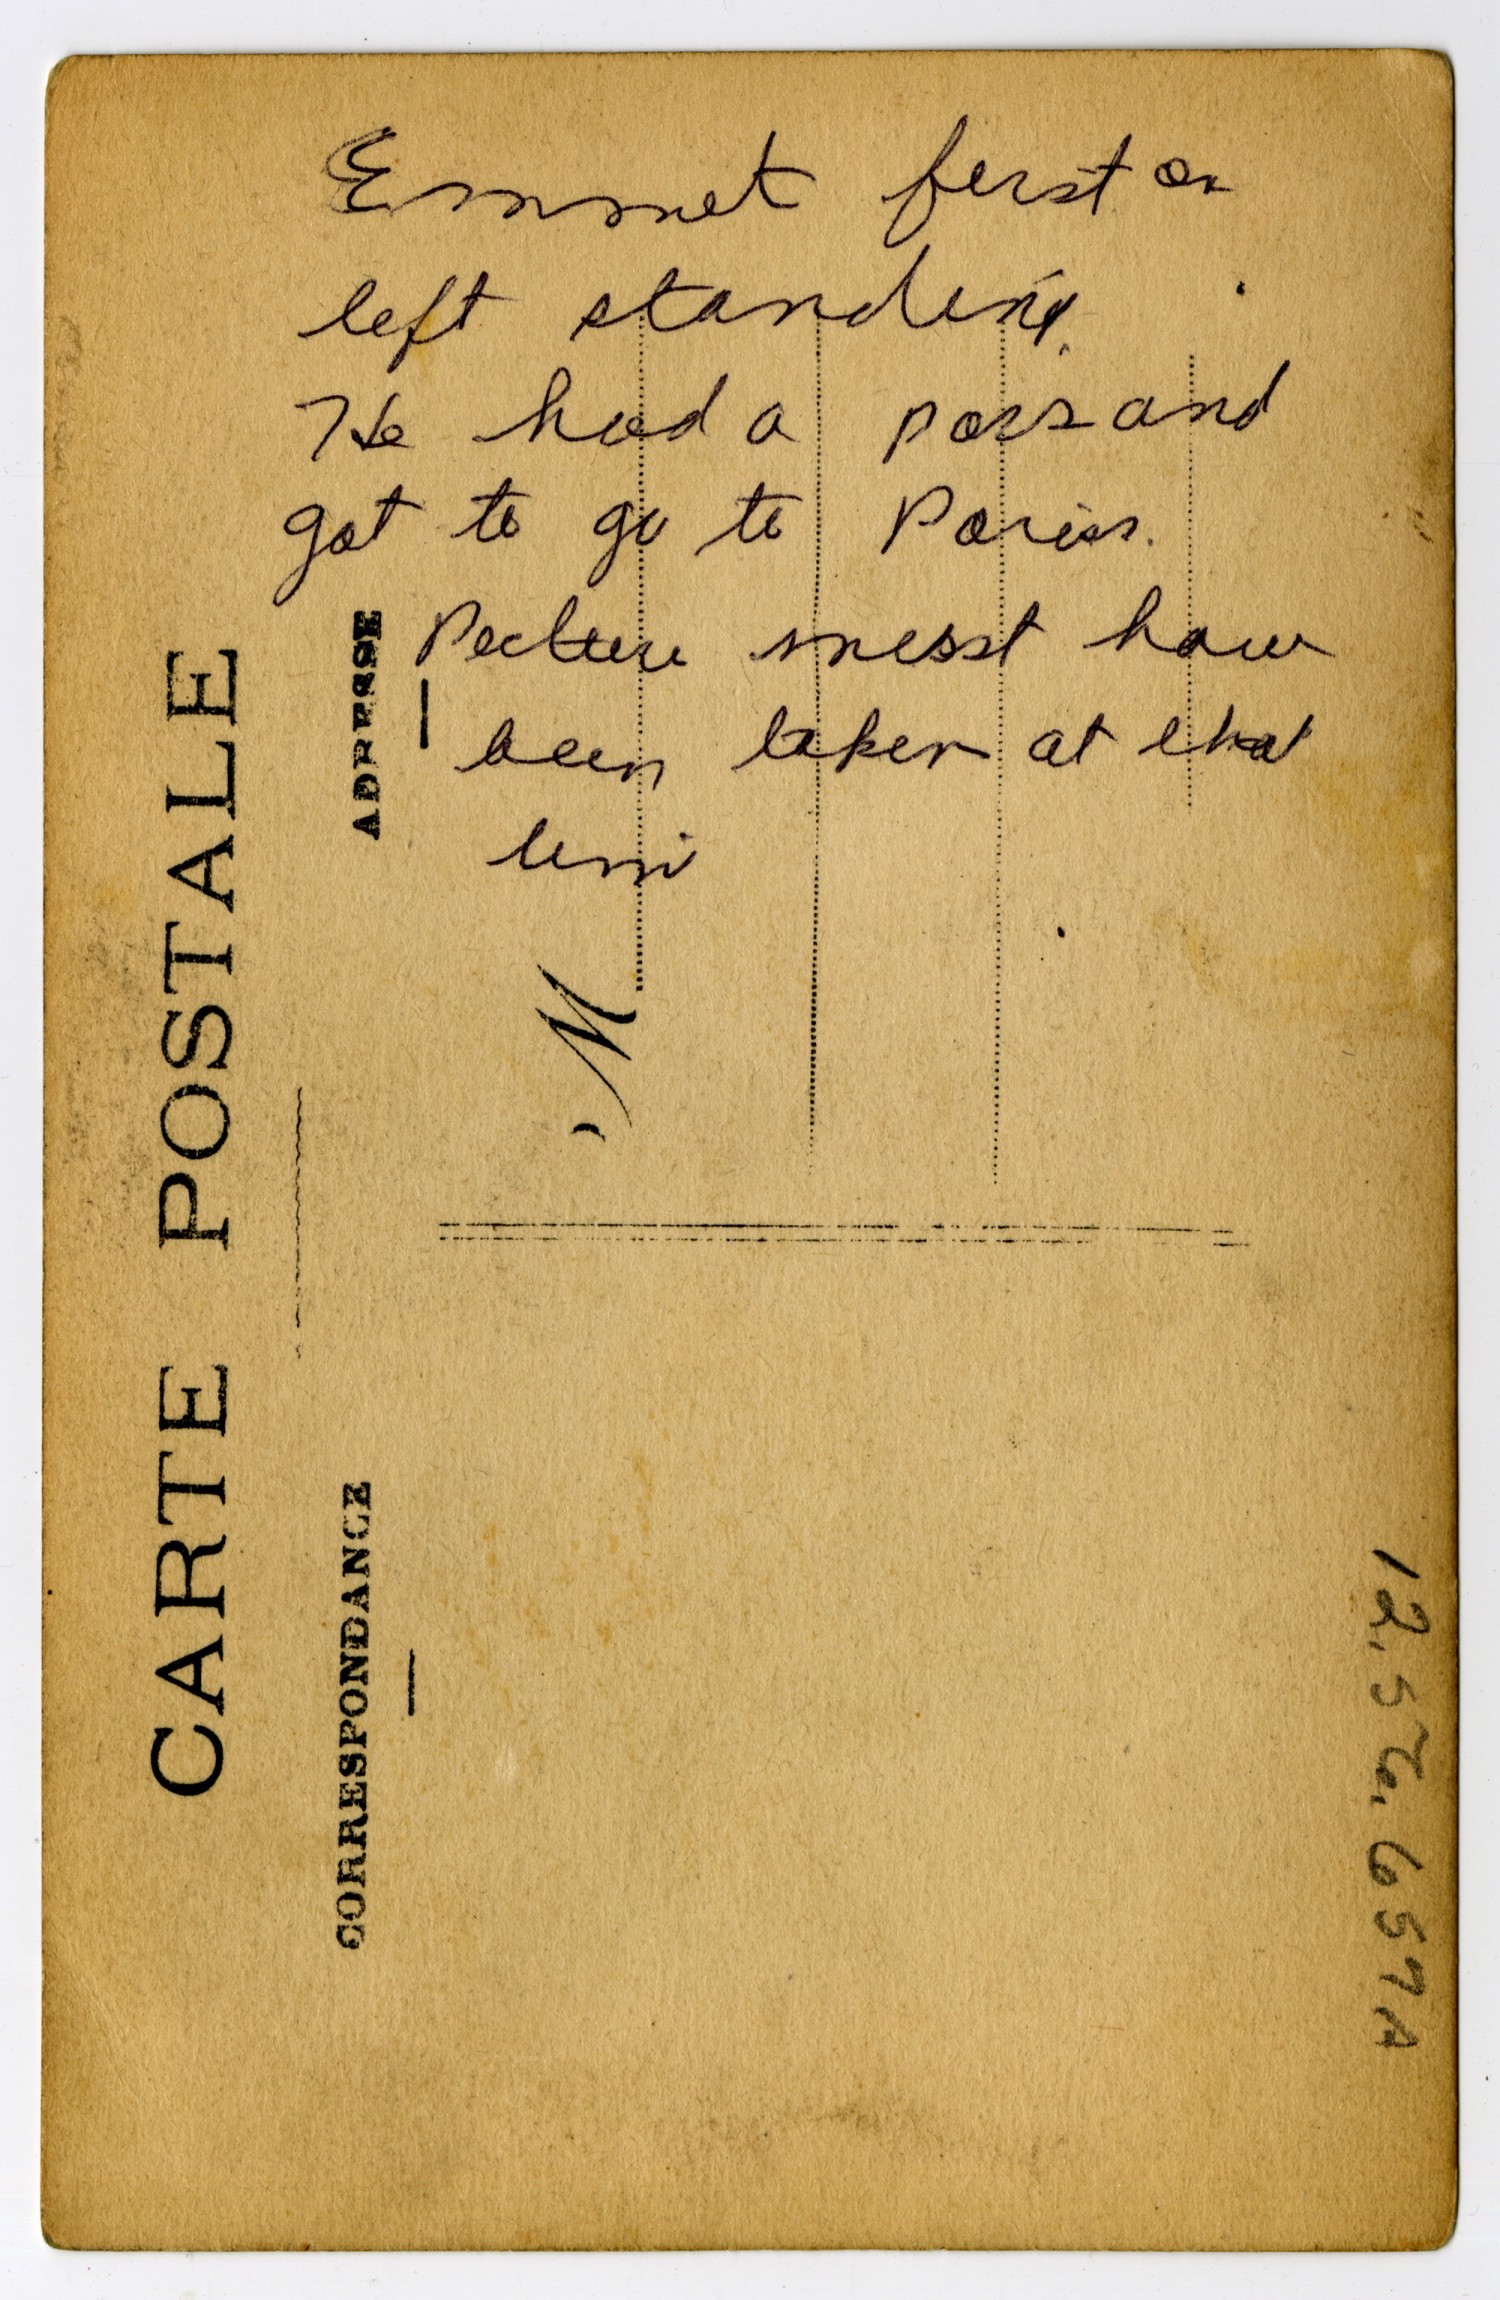 Emmet first on
left standing.
He had a pass and
got to go to Paris.
Picture must have
been taken at that
time
CARTE POSTALE
ADRESSE
CORRESPONDANCE
M
12.56.657A